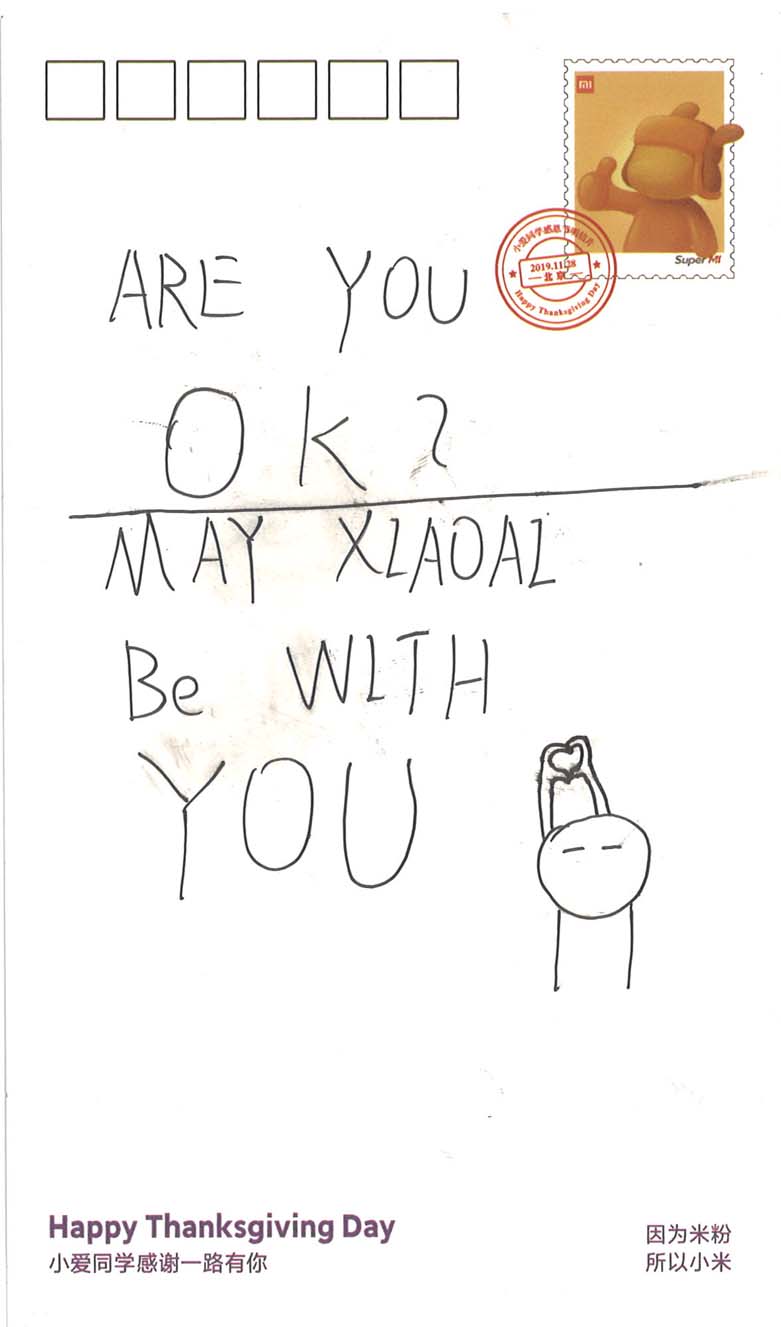 MI
Super MI
小爱同学感恩节明信片
2019.11.28
北京
Happy Thanksgiving Day
ARE YOU
OK?
MAY XIAOAI
Be WITH
YOU
Happy Thanksgiving Day
小爱同学感谢一路有你
因为米粉
所以小米